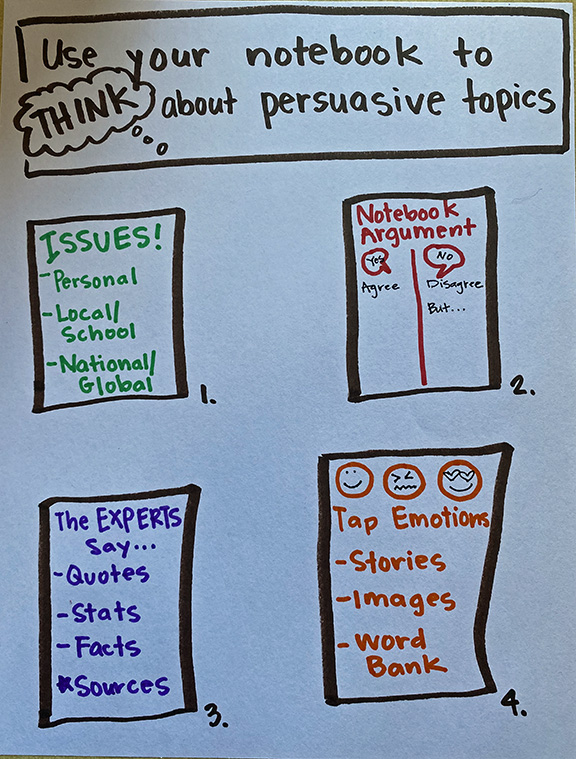 Use your notebook to
THINK about persuasive topics
ISSUES!
- Personal
- Local/
School
- National/
Global
1.
Notebook
Argument
Yes
No
Agree
Disagree
But...
2.
The EXPERTS
Say...
- Quotes
- Stats
- Facts
*Sources
3.
Tap Emotions
- Stories
- Images
- Word
Bank
4.